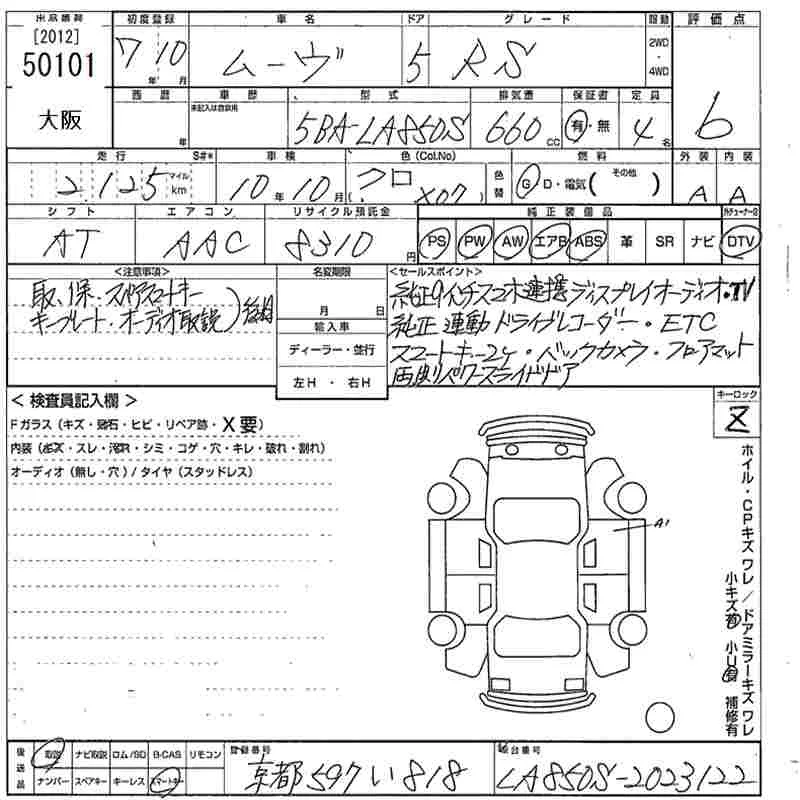 出品番号 初度登録 車名 ドア グレード 駆動 評価点
[2012] 50101 大阪
7年 10月 ムーヴ 5 RS 2WD・4WD 6
西暦 車歴 型式 排気量 保証書 定員
未記入は自家用
年 5BA-LA850S 660cc 有・無 4名
走行 S#* 車検 色(Col.No) 燃料 外装 内装
2.125 マイル km 10年10月 クロ X07 色替 G・D・電気( その他 ) A A
シフト エアコン リサイクル預託金 純正装備品
AT AAC 8310円 PS PW AW エアB ABS 革 SR ナビ DTV
<注意事項> 名変期限 <セールスポイント>
取、保、スペアスマートキー
キープレート・オーディオ取説)後日
月 日
輸入車
ディーラー・並行
左H・右H
純正9インチスマホ連携ディスプレイオーディオ・TV
純正連動ドライブレコーダー・ETC
スマートキー2ヶ・バックカメラ・フロアマット
両側パワースライドドア
<検査員記入欄>
Fガラス(キズ・飛石・ヒビ・リペア跡・X要)
内装(キズ・スレ・汚れ・シミ・コゲ・穴・キレ・破れ・割れ)
オーディオ(無し・穴)/タイヤ(スタッドレス)
キーロック
A1
ホイル・CPキズ ワレ/ドアミラーキズ ワレ
小キズ有 小U有 補修有
後送品 取説 ナビ取説 ロム/SD B-CAS リモコン
ナンバー スペアキー キーレス スマートキー
登録番号 京都 597 い 818
車台番号 LA850S-2023122